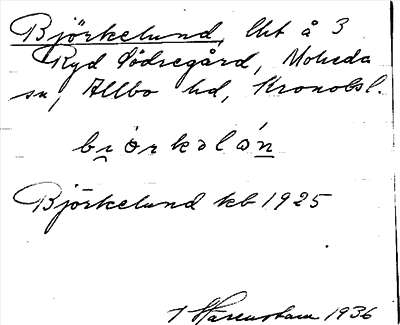 Björkelund, lht å 3
Ryd Södregård, Moheda
sn, Allbo hd, Kronobsl.
bi̯örkəlón̲
Björkelund kb 1925
1936